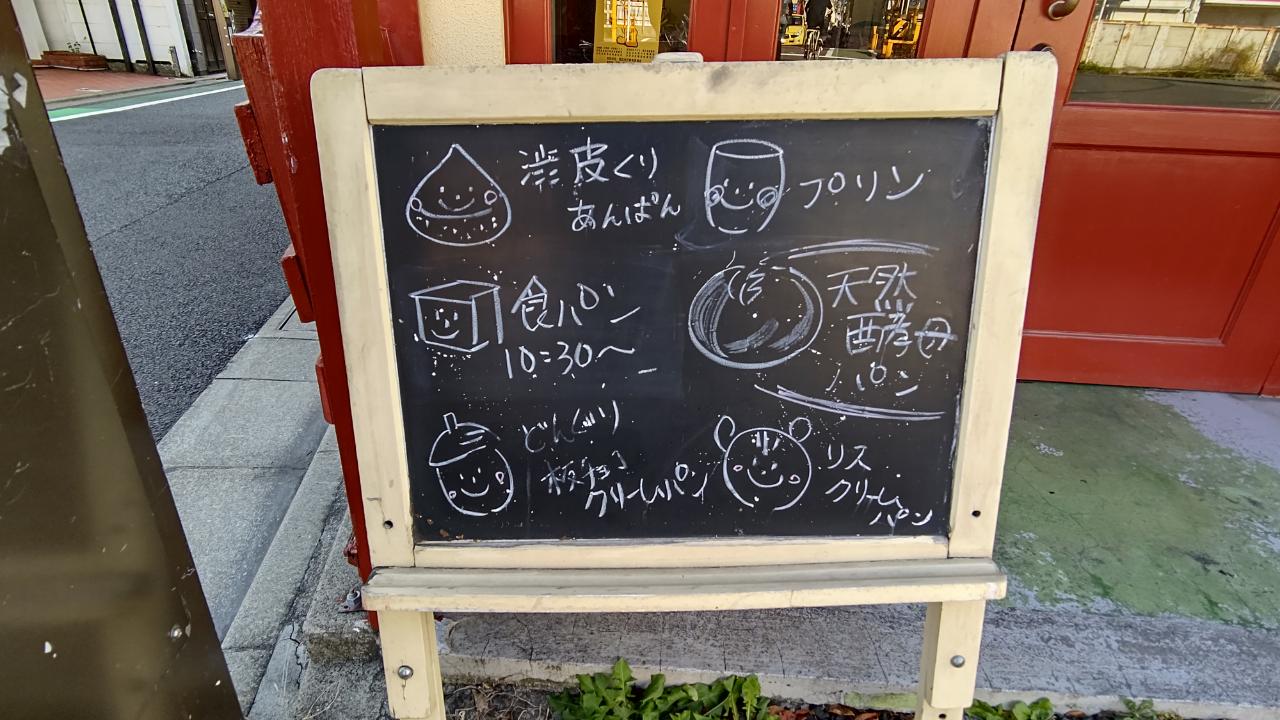 渋皮くり
あんぱん
プリン
食パン
10:30〜
天然
酵母
パン
どんぐり
板チョコ
クリームパン
リス
クリーム
パン